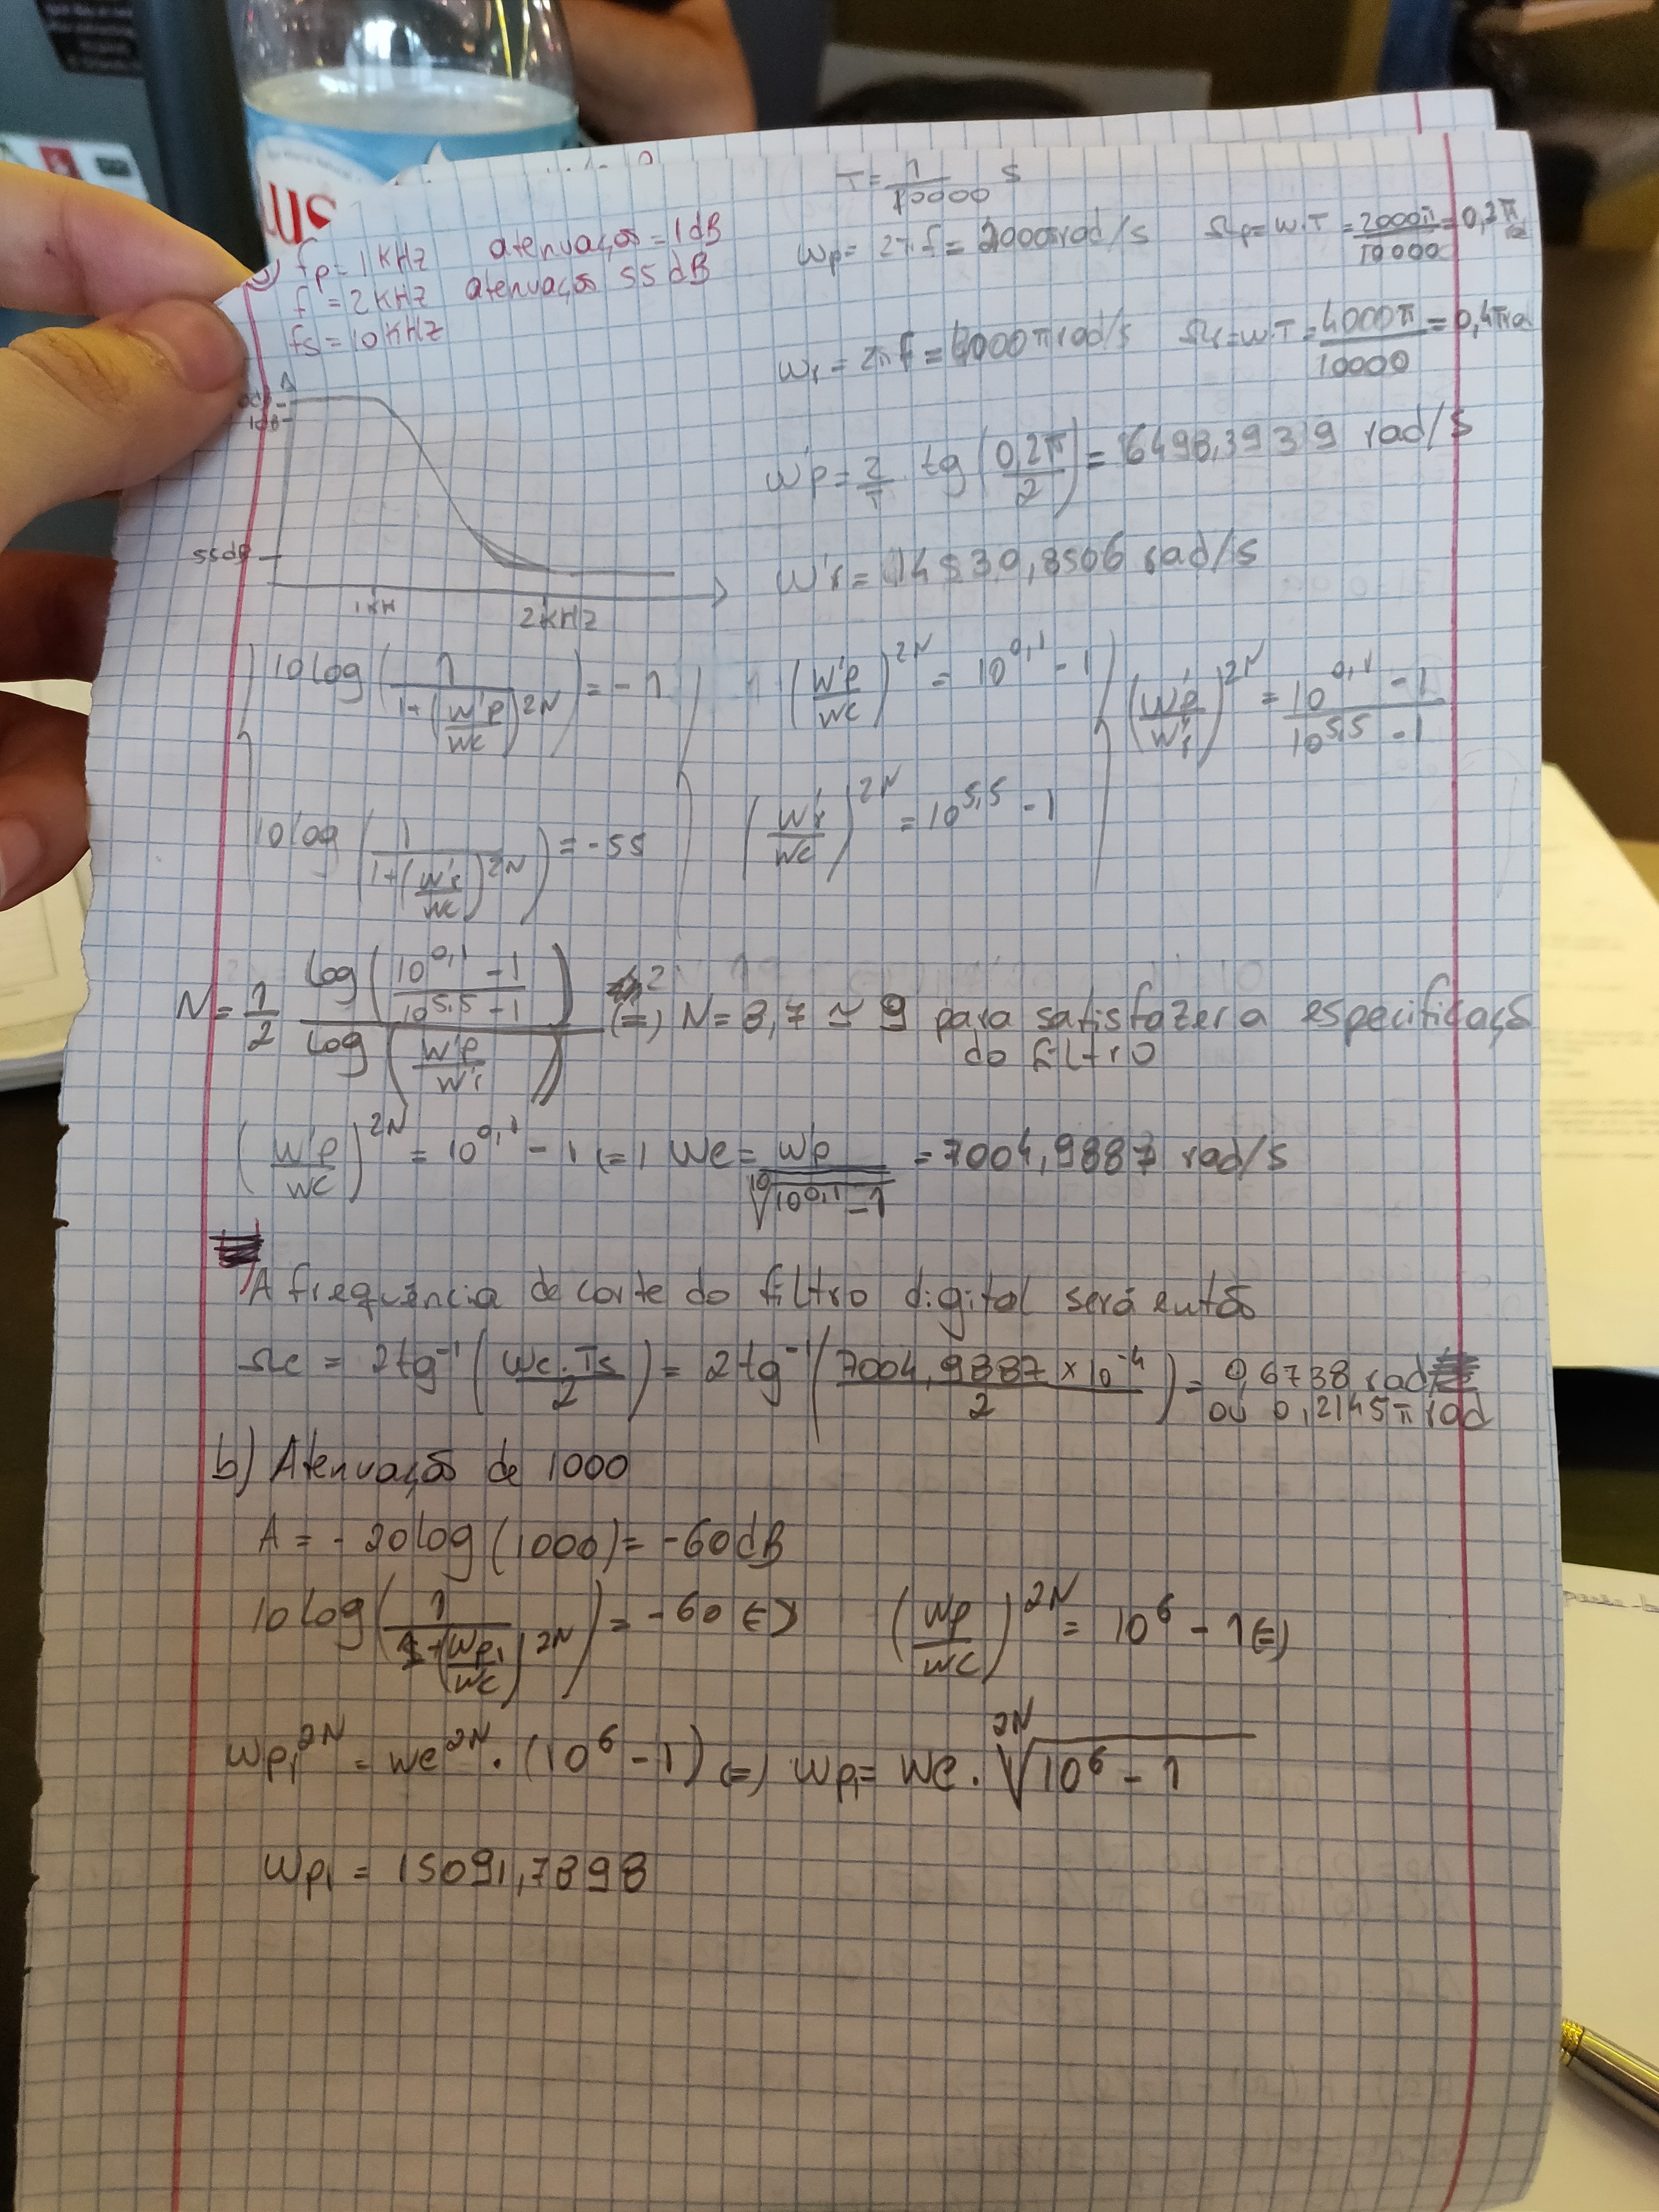 T = 1/10000 s
fp = 1KHZ atenuação = 1dB
f = 2KHZ atenuação 55dB
fs = 10KHZ
wp = 2π.f = 2000π rad/s Ωp = w.T = 2000π/10000 = 0,2π
wr = 2π f = 4000π rad/s Ωr = w.T = 4000π/10000 = 0,4π ra
1dB
55dB
1KH
2KHZ
w'p = 2/T tg (0,2π/2) = 6498,3939 rad/s
w'r = 14530,8506 rad/s
10 log (1/(1+(w'p/wc)^2N)) = -1
(w'p/wc)^2N = 10^0,1 - 1
(w'p/w'r)^2N = (10^0,1 - 1)/(10^5,5 - 1)
10 log (1/(1+(w'r/wc)^2N)) = -55
(w'r/wc)^2N = 10^5,5 - 1
N = 1/2 log((10^0,1 - 1)/(10^5,5 - 1))/log(w'p/w'r) (=) N = 8,7 ≃ 9 para satisfazer a especificação
do filtro
(w'p/wc)^2N = 10^0,1 - 1 (=) wc = wp/√(10^0,1 - 1) = 7004,9887 rad/s
A frequência de corte do filtro digital será então
Ωc = 2tg^-1 (wc.Ts/2) = 2tg^-1 (7004,9887 x 10^-4/2) = 0,6738 rad
ou 0,2145π rad
b) Atenuação de 1000
A = -20log(1000) = -60dB
10log(1/(1+(wp1/wc)^2N)) = -60 (=) (wp/wc)^2N = 10^6 - 1 (=)
wp1^2N = wc^2N . (10^6 - 1) (=) wp1 = wc . 2N√(10^6 - 1)
wp1 = 15091,7898